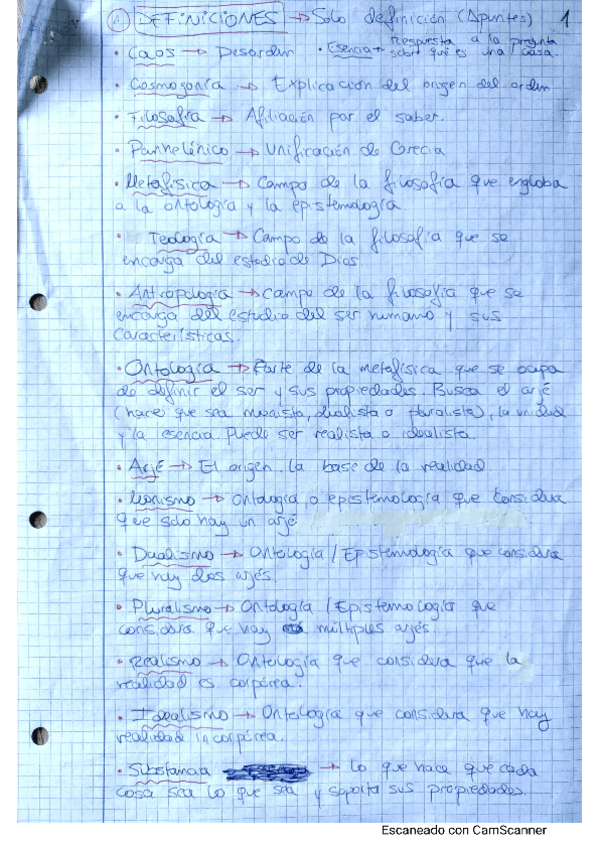 ① DEFINICIONES → Solo definición (Apuntes) 1
• Caos → Desorden • Esencia → Respuesta a la pregunta
sobre qué es una cosa.
• Cosmogonía → Explicación del origen del orden
• Filosofía → Afiliación por el saber.
• Panhelénico → Unificación de Grecia
• Metafísica → Campo de la filosofía que engloba
a la ontología y la epistemología.
Teología → Campo de la filosofía que se
encarga del estudio de Dios
• Antropología → Campo de la filosofía que se
encarga del estudio del ser humano y sus
características.
• Ontología → Parte de la metafísica que se ocupa
de definir el ser y sus propiedades. Busca el arjé
(hace que sea monista, dualista o pluralista), la unidad
y la esencia. Puede ser realista o idealista.
• Arjé → El origen, la base de la realidad.
• Monismo → Ontología o epistemología que considera
que solo hay un arjé
• Dualismo → Ontología / Epistemología que considera
que hay dos arjés.
• Pluralismo → Ontología / Epistemología que
considera que hay múltiples arjés.
• Realismo → Ontología que considera que la
realidad es corpórea.
• Idealismo → Ontología que considera que hay
realidad incorpórea.
• Substancia → Lo que hace que cada
cosa sea lo que sea y soporta sus propiedades.
Escaneado con CamScanner